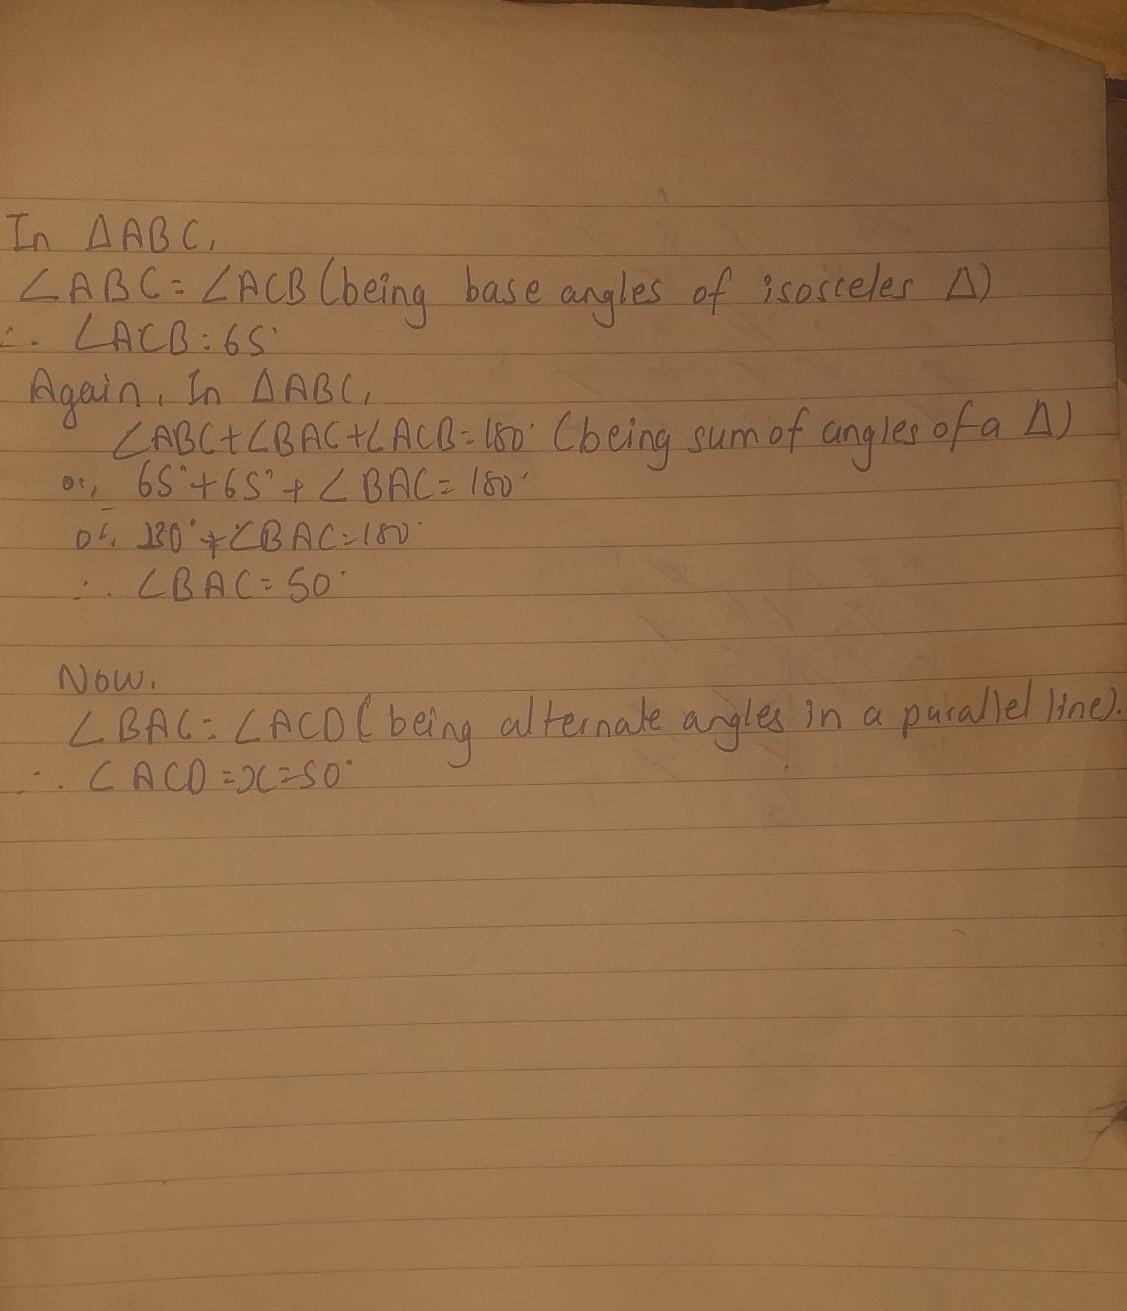 In ΔABC,
∠ABC = ∠ACB (being base angles of isosceles Δ)
∴ ∠ACB = 65°
Again, In ΔABC,
∠ABC+∠BAC+∠ACB=180° (being sum of angles of a Δ)
or, 65°+65°+∠BAC=180°
or, 130°+∠BAC=180°
∴ ∠BAC=50°
Now,
∠BAC=∠ACD (being alternate angles in a parallel line).
∴ ∠ACD=x=50°